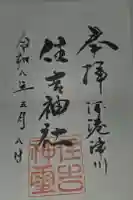 奉拝 河港津川
住吉神社
令和八年五月八日
住吉
神璽